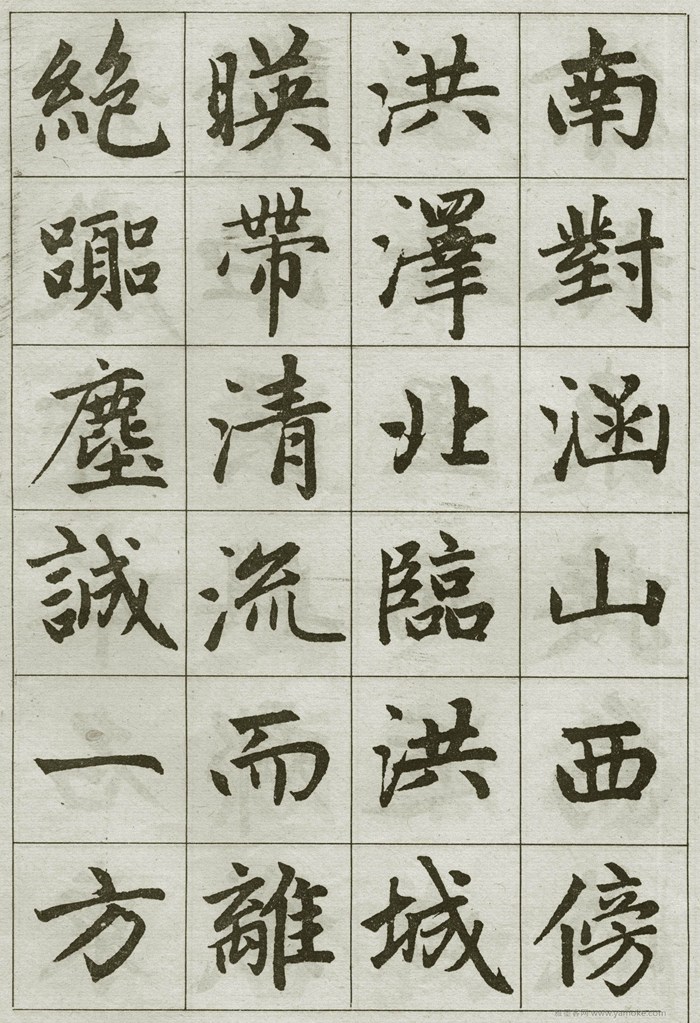 南對涵山西傍
洪澤北臨洪城
暎帶清流而離
絶囂塵誠一方
www.yamoke.com